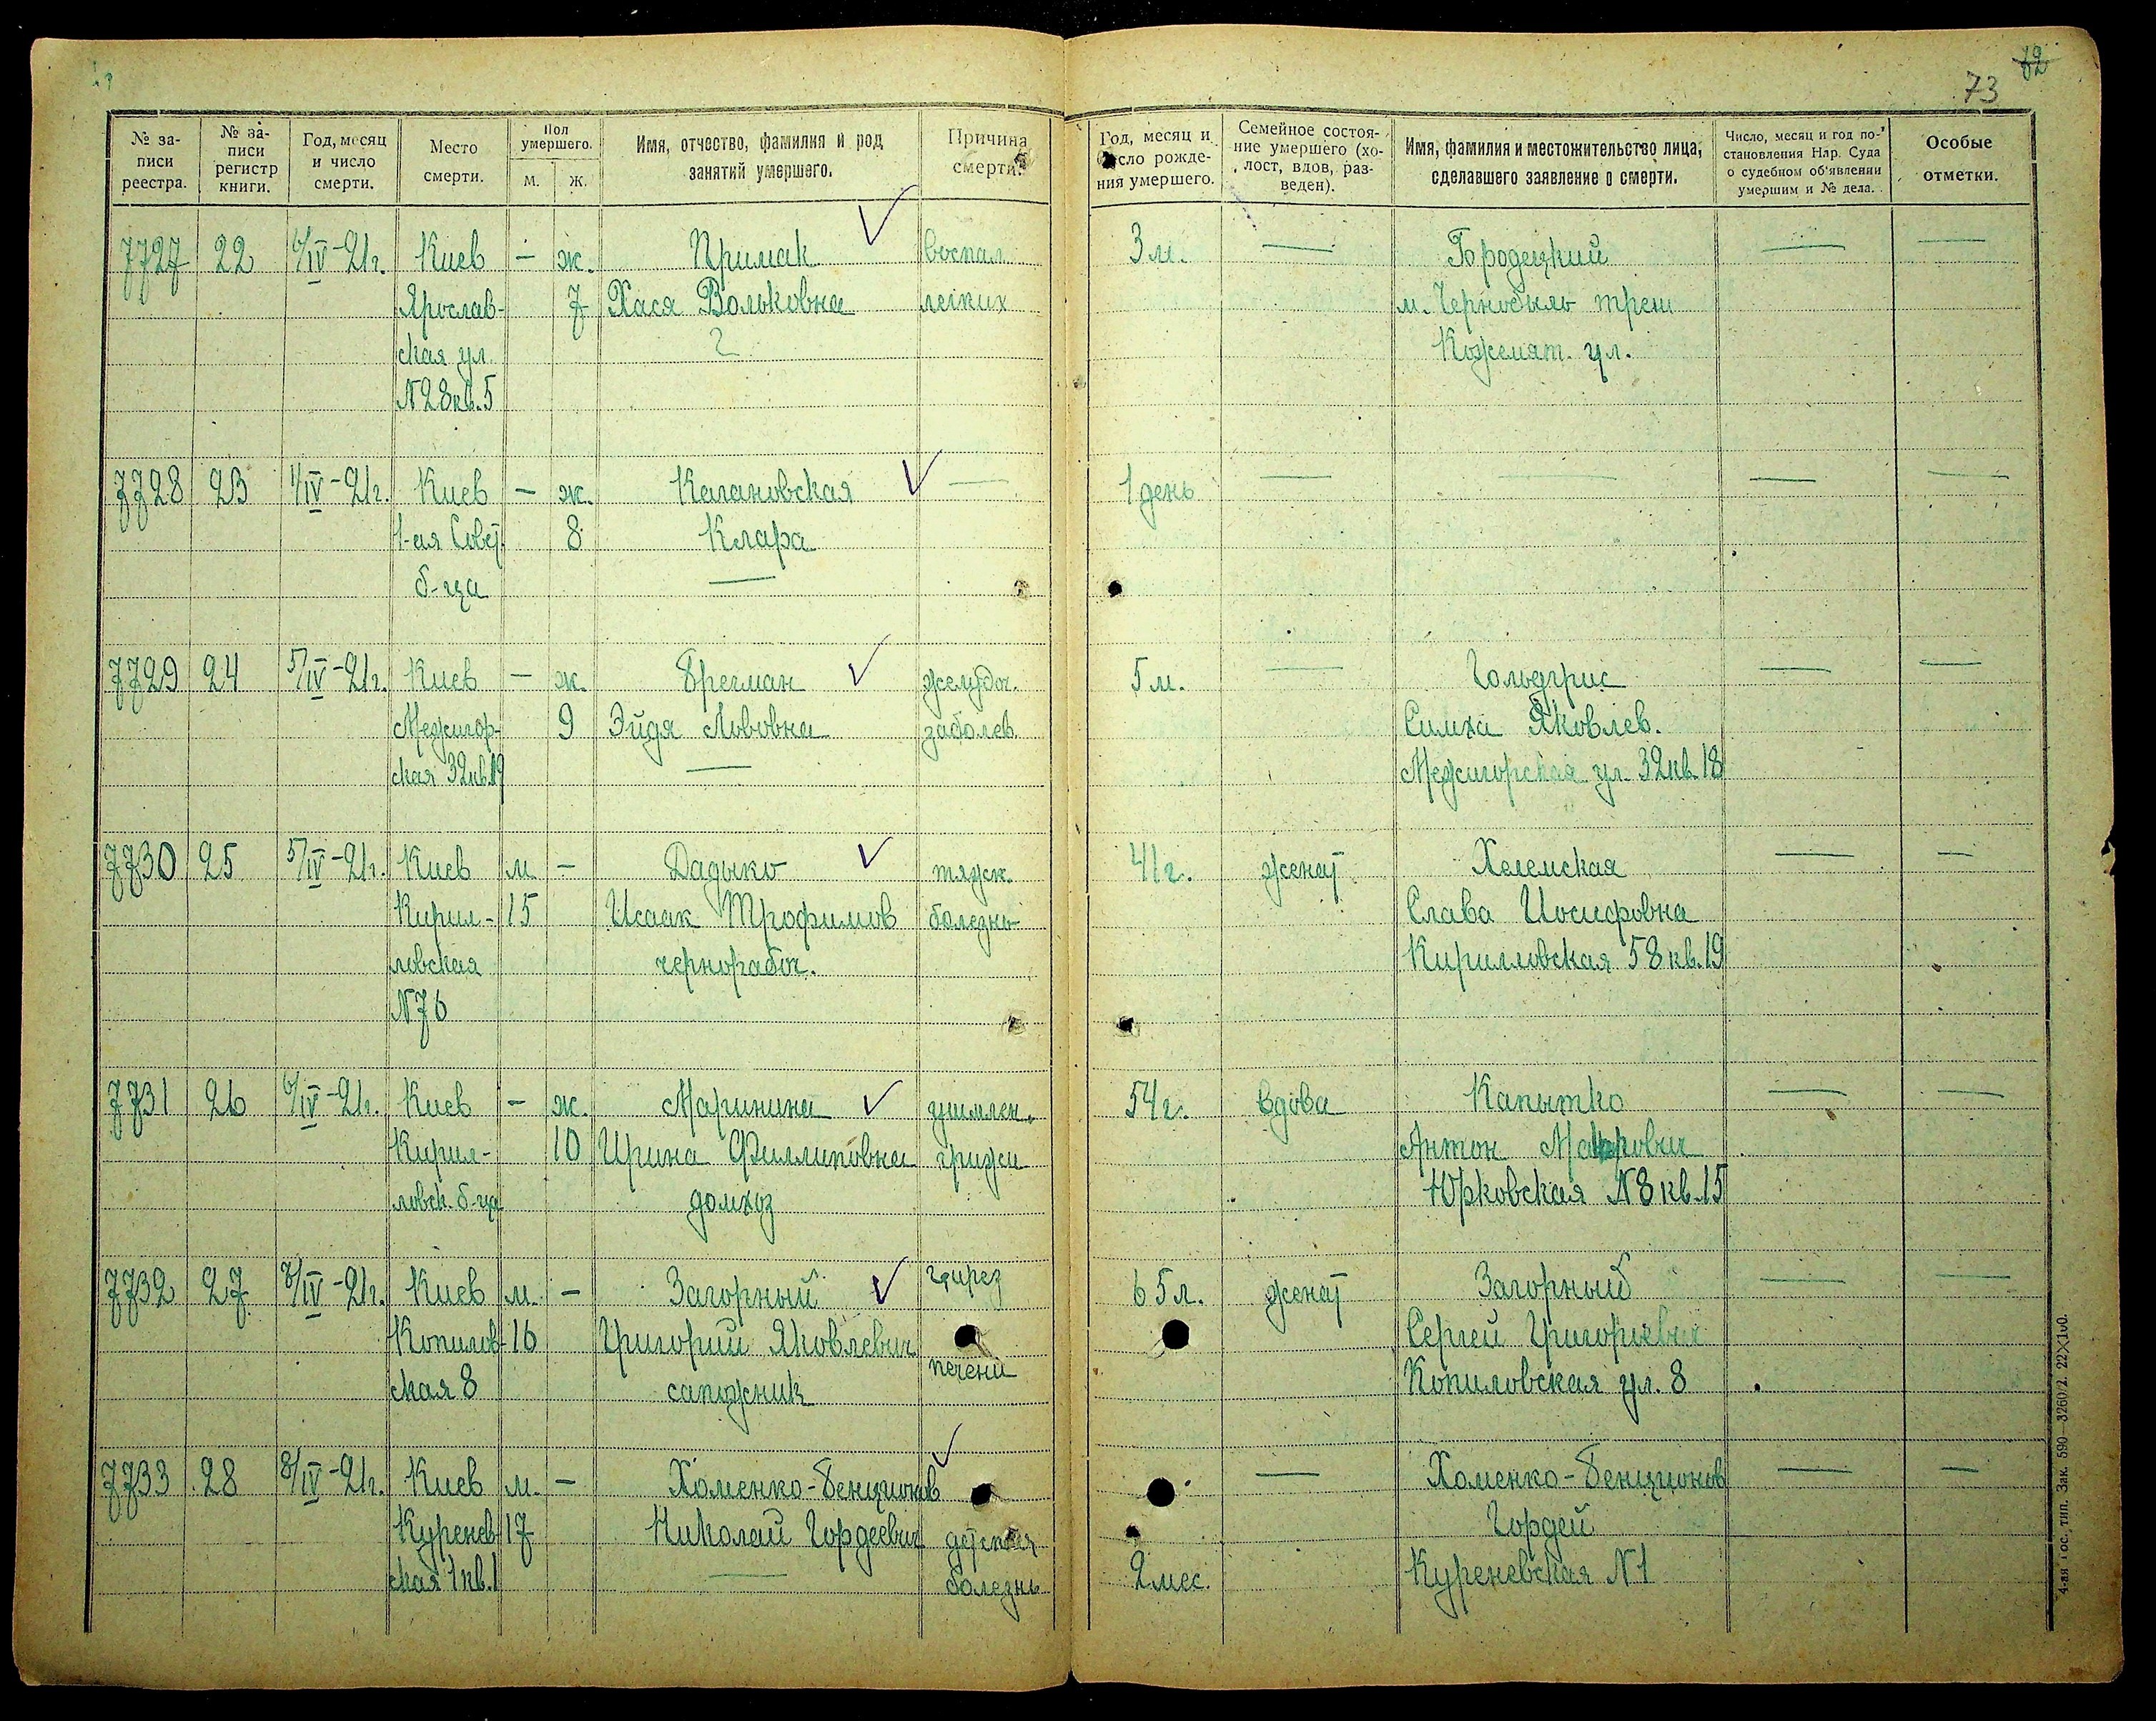 73 72
№ за-
писи
реестра.
№ за-
писи
регистр
книги.
Год, месяц
и число
смерти.
Место
смерти.
Пол
умершего.
м. ж.
Имя, отчество, фамилия и род
занятий умершего.
Причина
смерти.
Год, месяц и
число рожде-
ния умершего.
Семейное состоя-
ние умершего (хо-
лост, вдов, раз-
веден).
Имя, фамилия и местожительство лица,
сделавшего заявление о смерти.
Число, месяц и год по-
становления Нар. Суда
о судебном об'явлении
умершим и № дела.
Особые
отметки.
7727 22 6/IV-21г. Киев — ж. Примак воспал. 3 м. — Бородецкий — —
Ярослав- 7 Хася Вольковна легких м. Чернобыль
ская ул. Кожемят. ул.
№28 кв. 5
7728 23 1/IV-21г. Киев — ж. Кагановская — 1 день — — — —
1-ая Совет. 8 Клара
б-ца —
7729 24 5/IV-21г. Киев — ж. Брегман желудоч. 5 м. — — —
Межигор- 9 Эйдя Львовна заболев. Симха Яковлев.
ская 32 кв. 19 — Межигорская ул. 32 кв. 18
7730 25 5/IV-21г. Киев м — Дадыко тяжк. 41 г. женат Хелемская — —
Кирил- 15 Исаак Трофимов болезнь Слава Иосифовна
ловская чернорабоч. Кирилловская 58 кв. 19
№76
7731 26 6/IV-21г. Киев — ж. Маринина ущемлен. 54 г. вдова Капытко — —
Кирил- 10 Ирина Филлиповна грижи Антон
ловск. б-ца домхоз Юрковская №8 кв. 15
7732 27 7/IV-21г. Киев м. — Загорный 65 л. женат Загорный — —
Копилов- 16 Григорий Яковлевич печени Сергей Григорьевич
ская 8 сапожник Копиловская ул. 8
7733 28 8/IV-21г. Киев м. — Хоменко-Бенционов — Хоменко-Бенционов — —
Куренев- 17 Николай Гордеевич детская Гордей
ская 1 кв. 1 — болезнь 2 мес. Куреневская №1
4-ая Гос. тип. Зак. 590—3260/2. 22×100.